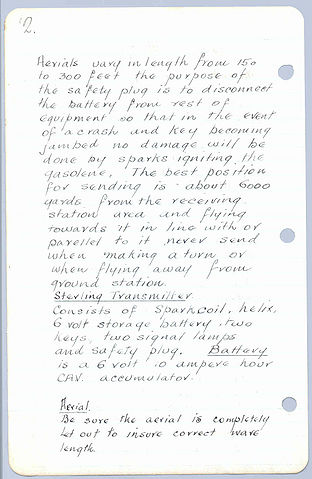 2.
Aerials vary in length from 150
to 300 feet the purpose of
the safety plug is to disconnect
the battery from rest of
equipment so that in the event
of a crash and key becoming
jambed no damage will be
done by sparks igniting the
gasolene. The best position
for sending is about 6000
yards from the receiving
station area and flying
towards it in line with or
parellel to it never send
when making a turn or
when flying away from
ground station.
Sterling Transmitter
Consists of Sparkcoil, helix,
6 volt storage battery, two
keys, two signal lamps
and safety plug. Battery
is a 6 volt 10 ampere hour
CAV. accumulator.
Aerial.
Be sure the aerial is completely
let out to insure correct wave
length.